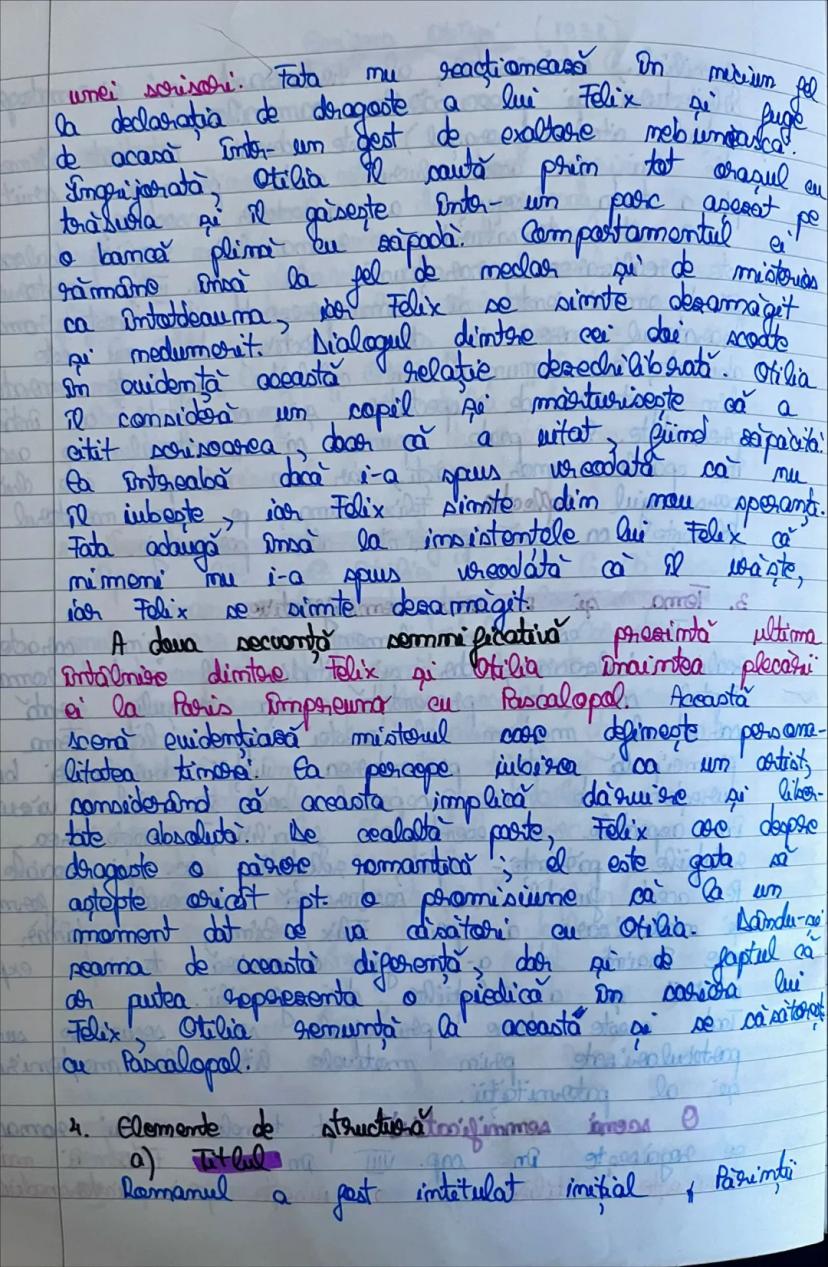 unei scrisori. Fata nu reacționează în niciun fel
la declarația de dragoste a lui Felix și fuge
de acasă într-un gest de exaltare nebunească.
Îngrijorată, Otilia îl caută prin tot orașul cu
trăsura și îl găsește într-un parc așezat pe
o bancă plină cu zăpadă. Comportamentul ei
rămâne însă la fel de neclar și de misterios
ca întotdeauna, iar Felix se simte dezamăgit
și nedumerit. Dialogul dintre cei doi scoate
în evidență această relație dezechilibrată. Otilia
îl consideră un copil și mărturisește că a
citit scrisoarea, doar că a uitat, fiind zăpăcită.
Ea întreabă dacă i-a spus vreodată că nu
îl iubește, iar Felix simte din nou speranță.
Fata adaugă însă la insistențele lui Felix că
nimeni nu i-a spus vreodată că îl urăște,
iar Felix se simte dezamăgit.
A doua secvență semnificativă prezintă ultima
întâlnire dintre Felix și Otilia înaintea plecării
ei la Paris împreună cu Pascalopol. Această
scenă evidențiază misterul care definește persona-
litatea tinerei. Ea percepe iubirea ca un artist,
considerând că aceasta implică dăruire și liber-
tate absolută. De cealaltă parte, Felix are despre
dragoste o părere romantică; el este gata să
aștepte oricât pt. o promisiune că la un
moment dat se va căsători cu Otilia. Dându-și
seama de această diferență, dar și de faptul că
ar putea reprezenta o piedică în cariera lui
Felix, Otilia renunță la aceasta și se căsătorește
cu Pascalopol.
4. Elemente de structură
a) Titlul
Romanul a fost intitulat inițial „Părinții